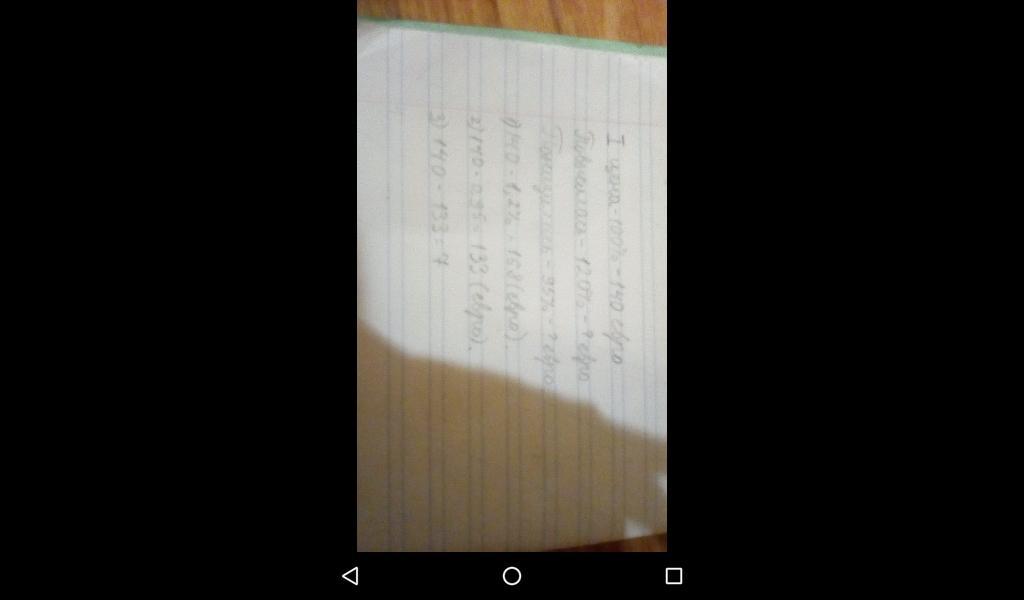 I цена - 100% - 140 евро
Повысилась - 120% - ? евро
Понизилась - 95% - ? евро
1) 140 · 1,2% = 168 (евро).
2) 140 · 0,95 = 133 (евро).
3) 140 - 133 = 7